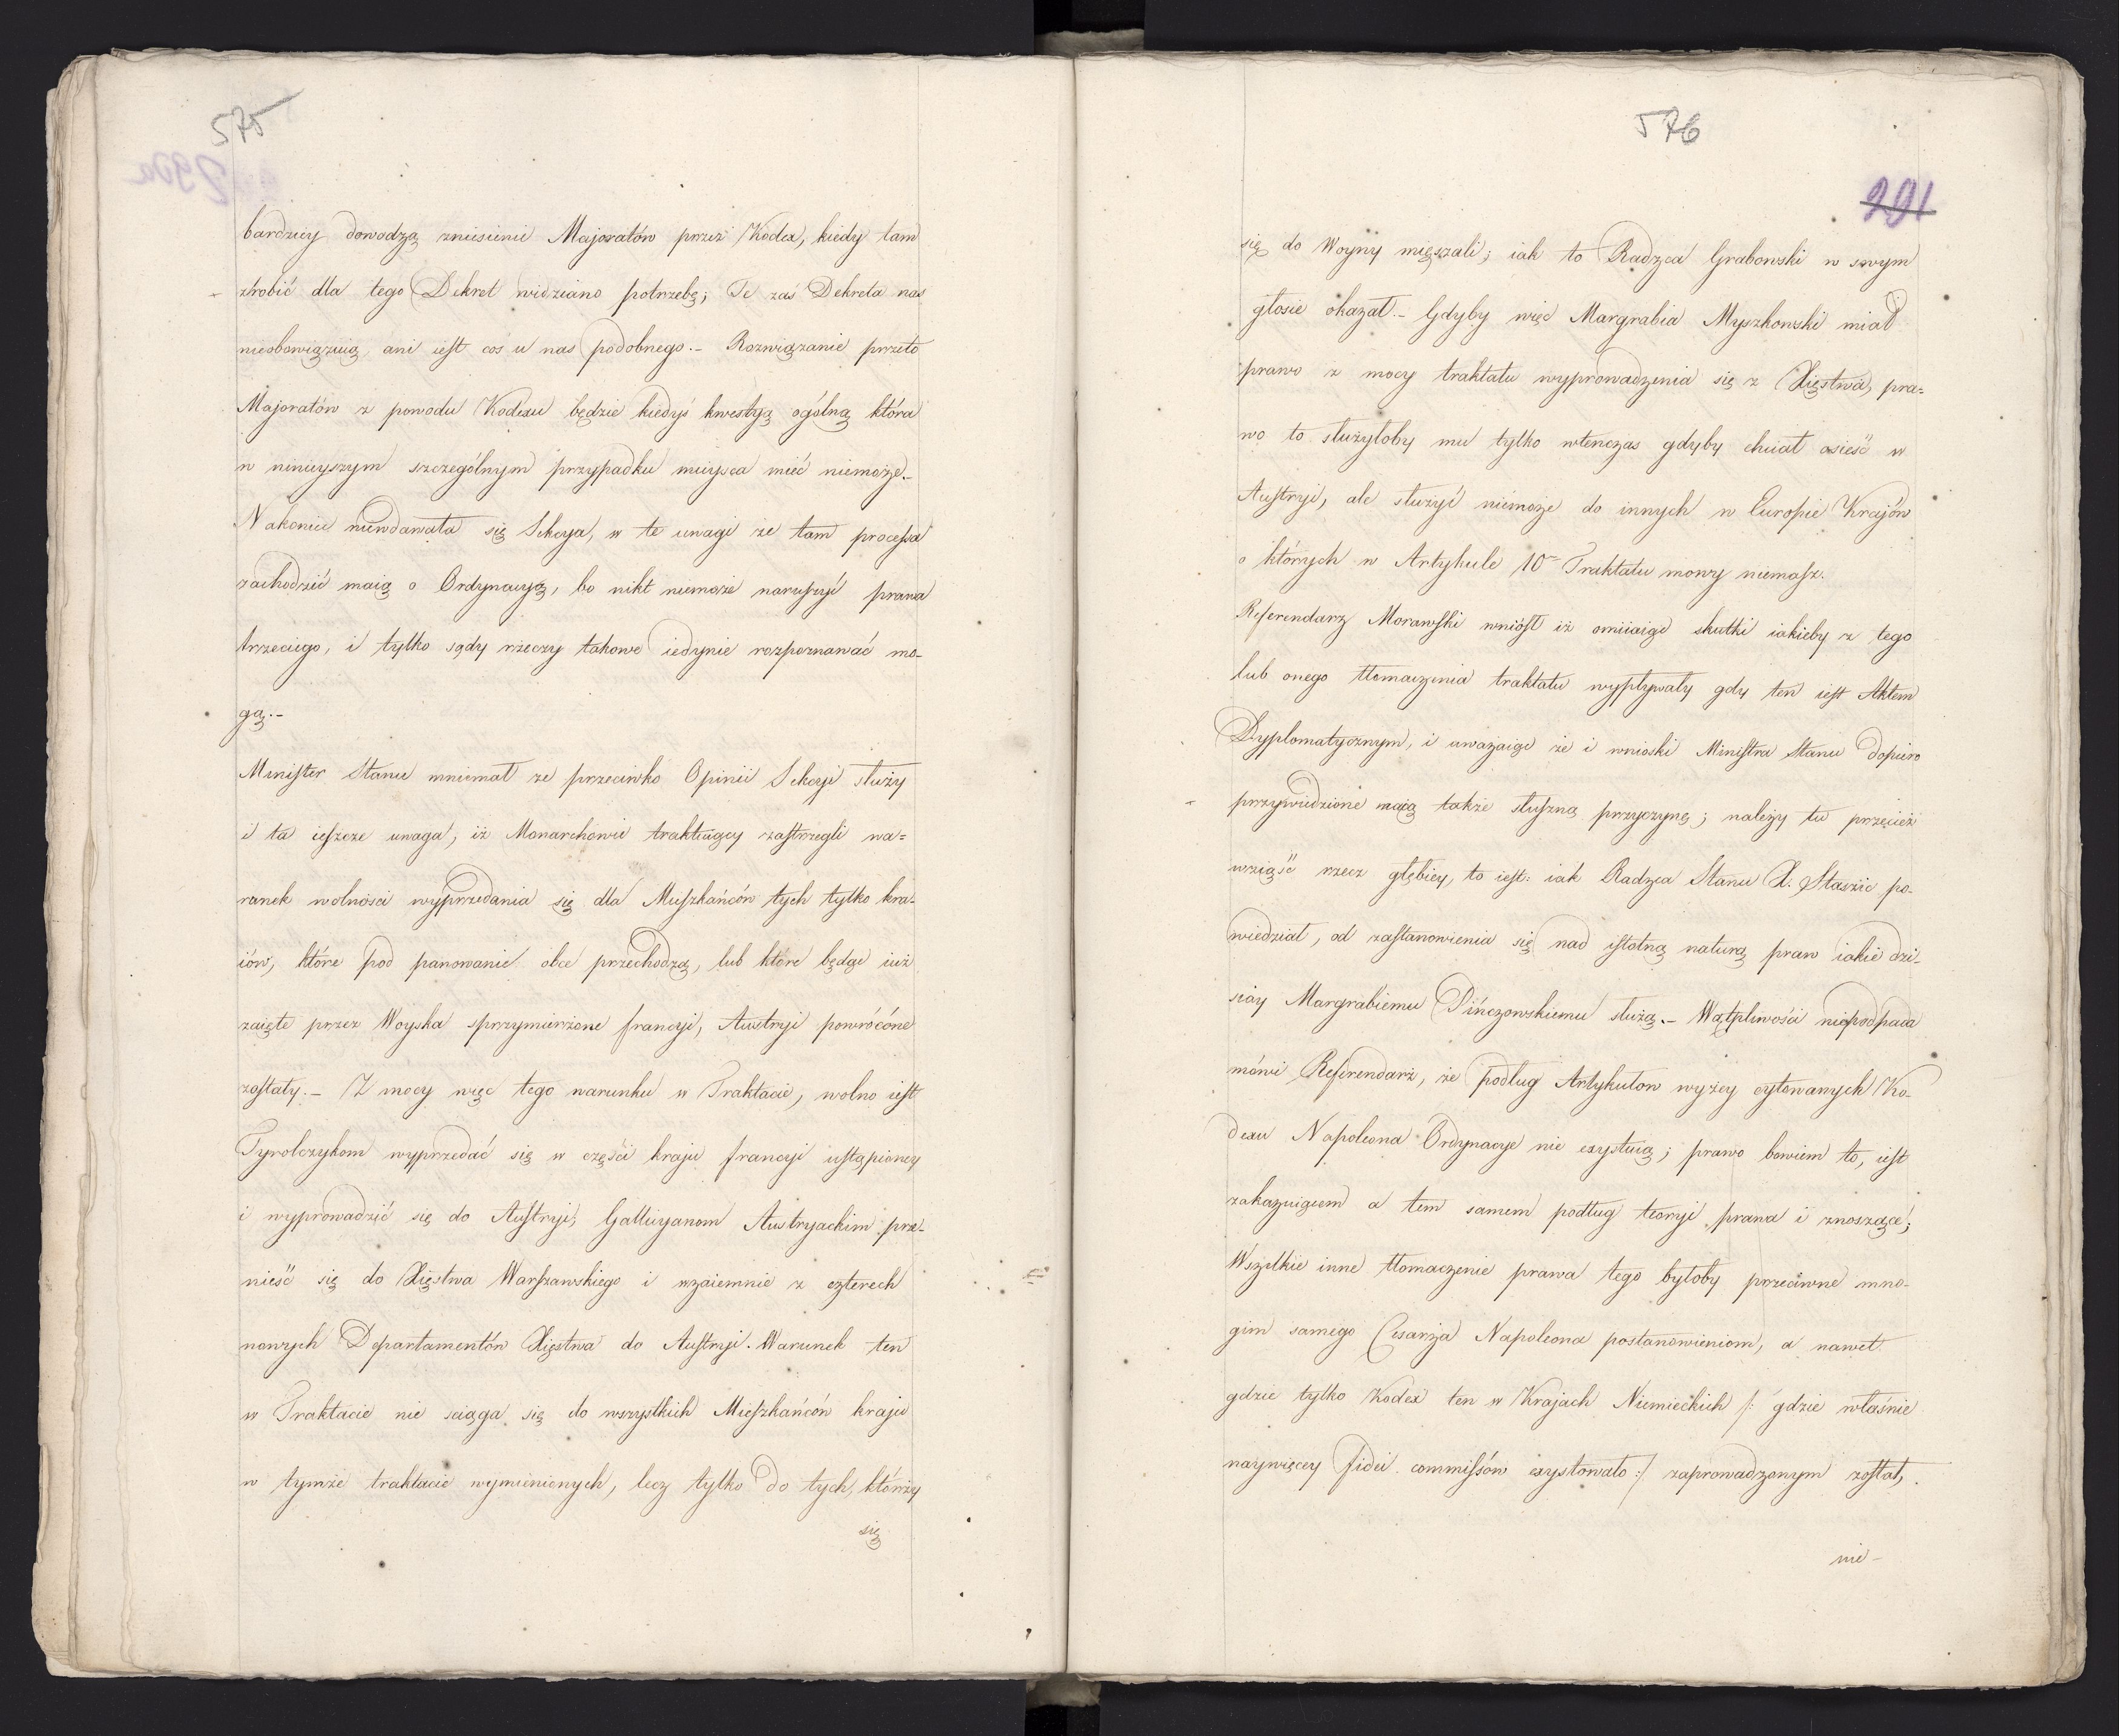 575
bardziey dowodzą zniesienie Majoratów przez Kodex, kiedy tam
zrobić dla tego Dekret widziano potrzebę; Te zaś Dekreta nas
nieobowiązuią, ani iest cos u nas podobnego.– Rozwiązanie przeto
Majoratów z powodu Kodexu będzie kiedyś kwestyą ogólną która
w ninieyszym szczególnym przypadku mieysca mieć niemoże.–
Nakoniec niewdawała się Sekcya, w te uwagi że tam processa
zachodzić maią o Ordynacyą, bo nikt niemoże naruszyć prawa
trzeciego, i tylko sądy rzeczy takowe iedynie rozpoznawać mo-
gą.–
Minister Stanu mniemał że przeciwko Opinii Sekcyi służy
i ta ieszcze uwaga, iż Monarchowie traktuiący zastrzegli wa=
runek wolności wyprzedania się dla Mieszkańców tych tylko kra-
iów, które pod panowanie obce przechodzą, lub które będąc iuż
zaięte przez Woyska sprzymierzone francyi, Austryi powrócone
zostały.– Z mocy więc tego warunku w Traktacie, wolno iest
Tyrolczykom wyprzedać się w części kraju francyi ustąpioney
i wyprowadzić się do Austryi, Gallicyanom Austryackim prze-
nieść się do Xięstwa Warszawskiego i wzaiemnie z czterech
nowych Departamentów Xięstwa do Austryi. Warunek ten
w Traktacie nie sciąga się do wszystkich Mieszkańców kraju
w tymże traktacie wymienionych, lecz tylko do tych, którzy
się
576
291
się do Woyny mięszali; iak to Radzca Grabowski w swym
głosie okazał.– Gdyby więc Margrabia Myszkowski miał
prawo z mocy traktatu wyprowadzenia się z Xięstwa, pra=
wo to służyłoby mu tylko wtenczas gdyby chciał osieść w
Austryi, ale służyć niemoże do innych w Europie Krajów
o których w Artykule 10m Traktatu mowy niemasz.
Referendarz Morawski wniósł iż omiiaiąc skutki iakieby z tego
lub onego tłomaczenia traktatu wypływały gdy ten iest Aktem
Dyplomatycznym, i uważaiąc że i wnioski Ministra Stanu dopiero
przywiedzione maią także słuszną przyczynę; należy tu przecież
wziąść rzecz głębiey, to iest: iak Radzca Stanu X. Staszic po-
wiedział, od zastanowienia się nad istotną naturą praw iakie dzi-
siay Margrabiemu Pińczowskiemu służą.– Wątpliwości niepodpada
mówi Referendarz, że podług Artykułow wyżey cytowanych Ko-
dexu Napoleona Ordynacye nie exystuią; prawo bowiem to, iest
zakazuiącem a tem samem podług teoryi prawa i znoszące;
Wszelkie inne tłomaczenie prawa tego byłoby przeciwne mno-
gim samego Cesarza Napoleona postanowieniom, a nawet
gdzie tylko Kodex ten w Krajach Niemieckich /: gdzie właśnie
naywięcey fidei commissów exystowało :/ zaprowadzonym został,
nie-